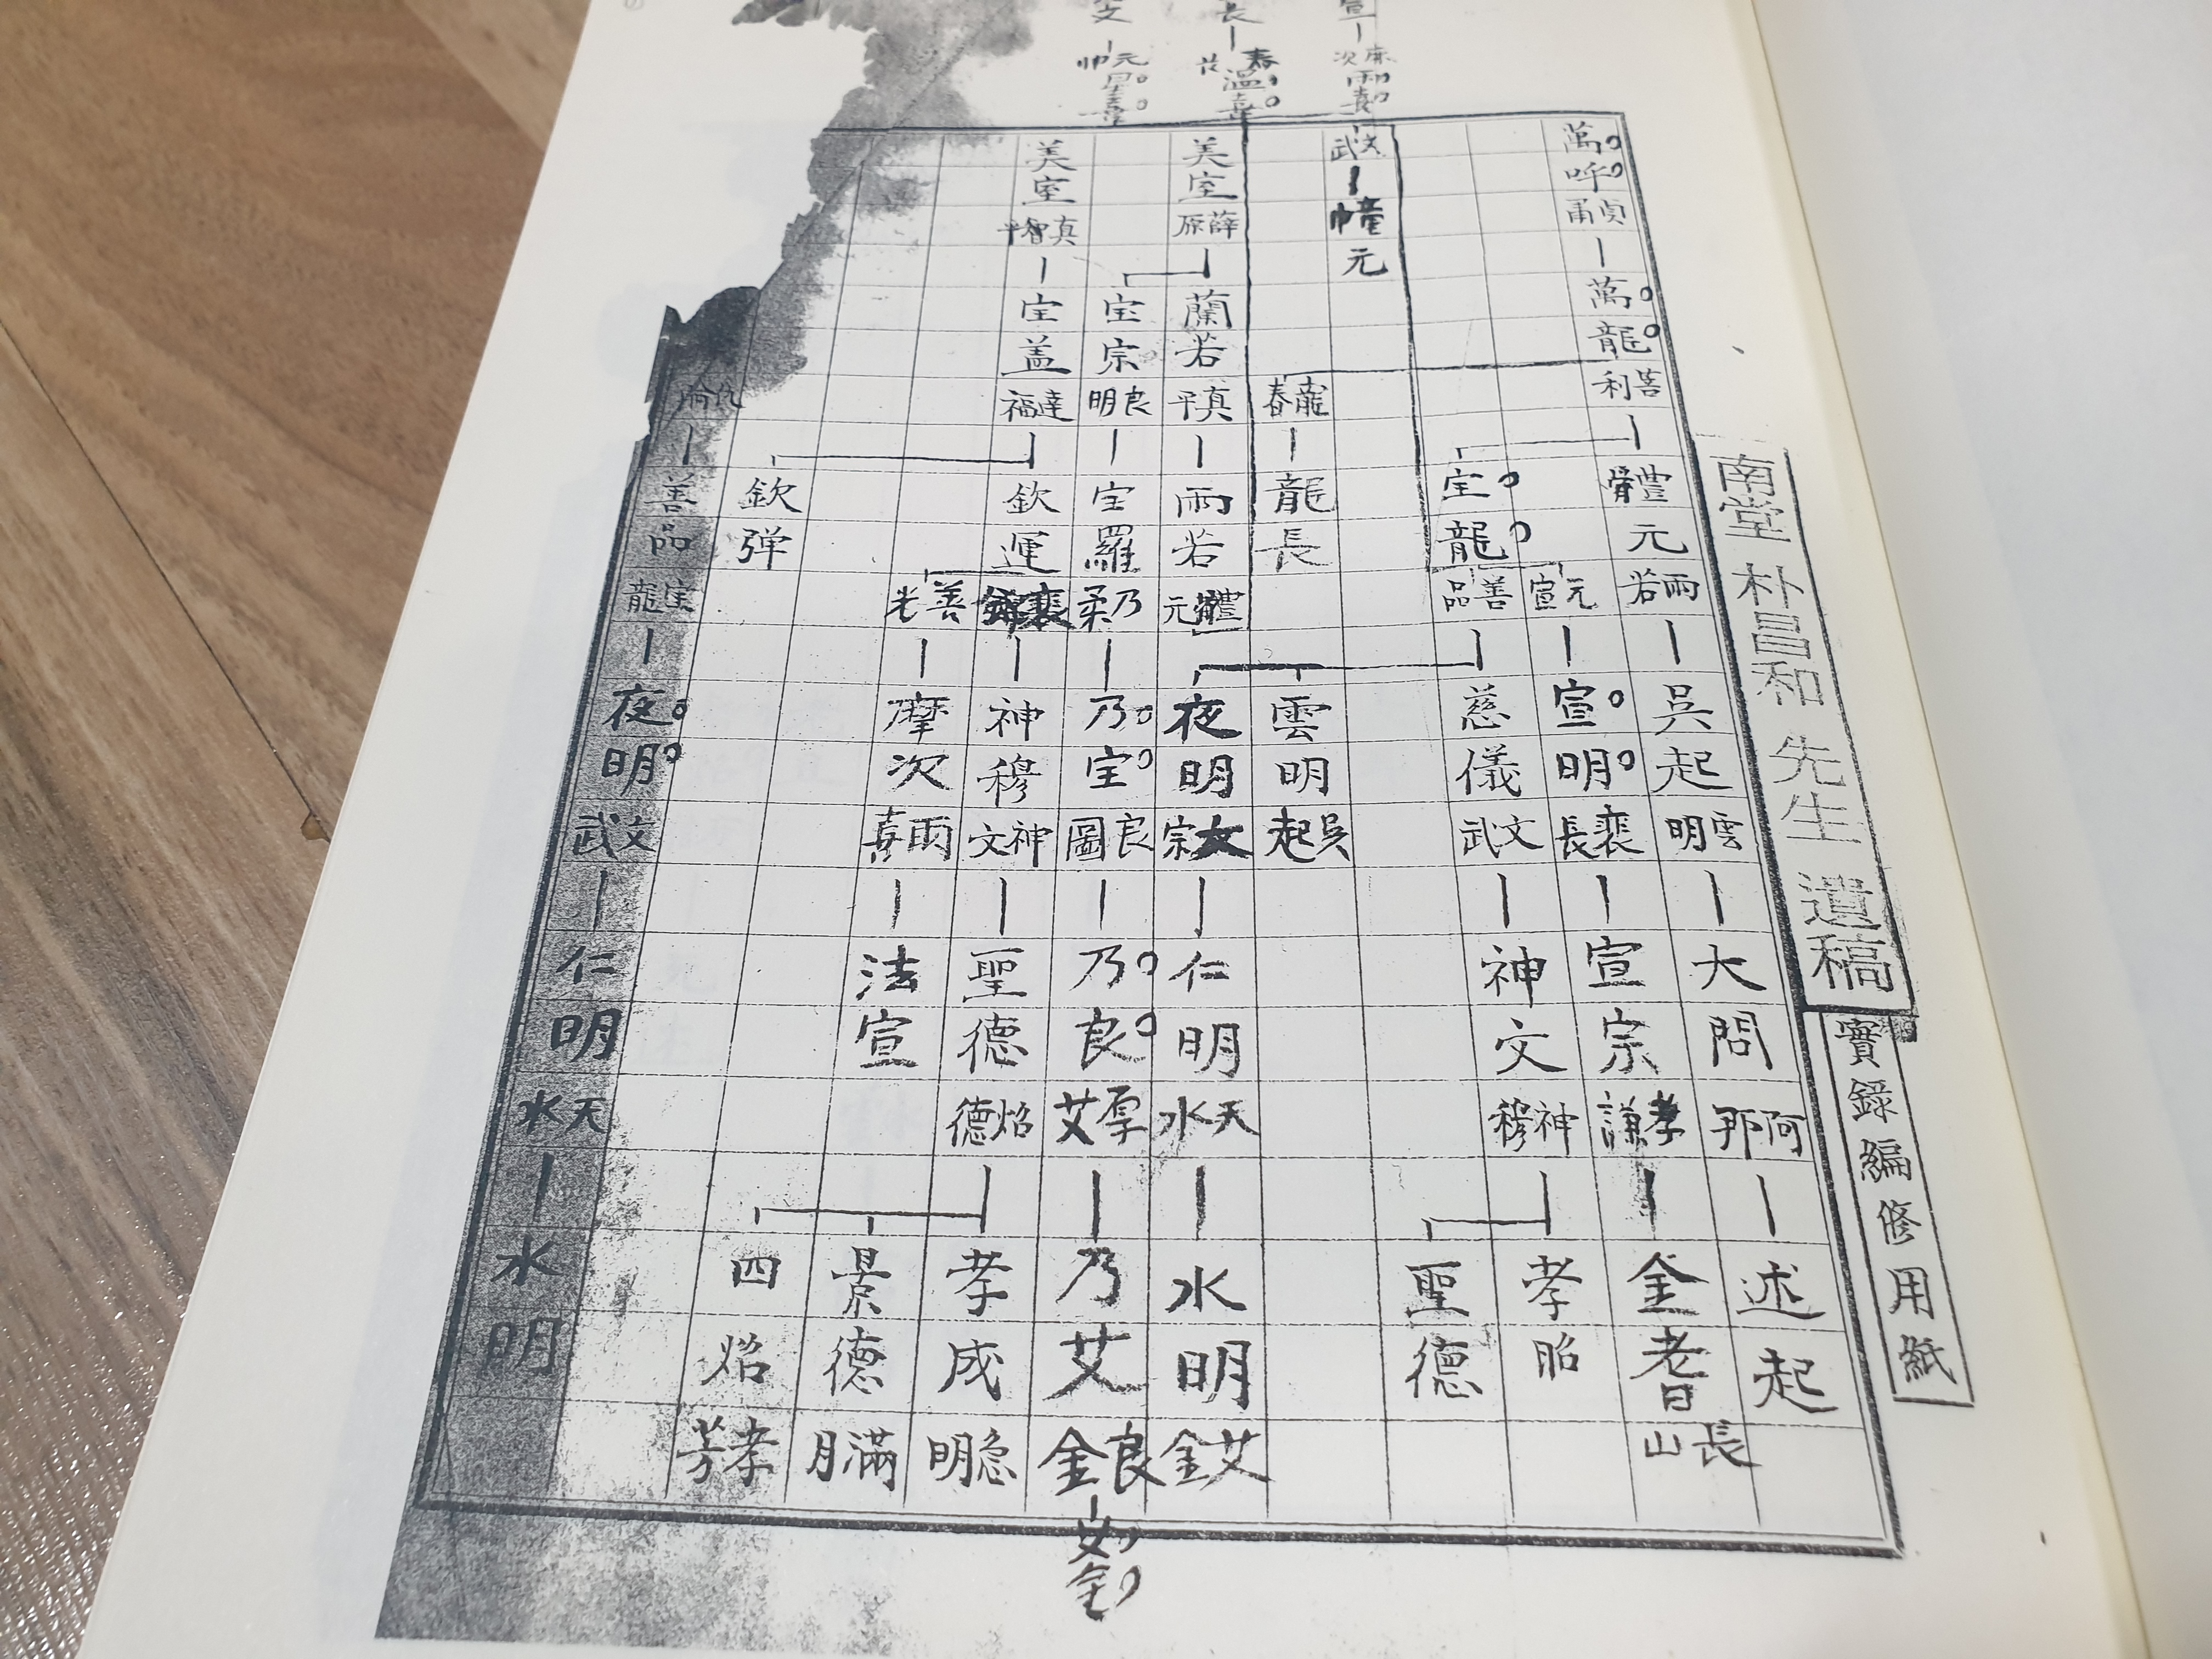 南堂 朴昌和 先生 遺稿
實錄編修用紙
萬呼
貞甬
萬龍
菩利
體元
雨若
吳起
雲明
大問
阿那
述起
元宣
宣明
裴長
宣宗
孝謙
金耆
長山
宝龍
善品
慈儀
文武
神文
神穆
孝昭
聖德
文武
幢
元
龍春
龍長
雲明
吳起
美室
薛原
蘭若
真平
雨若
體元
夜明
大宗
仁明
天水
水明
艾金
宝宗
良明
宝羅
乃柔
乃宝
良圖
乃良
厚艾
乃艾
良金
美室
真智
宝盖
達福
欽運
神穆
神文
聖德
焰德
孝成
急明
善光
摩次
雨喜
法宣
景德
滿月
欽弹
四焰
孝芳
仇
善品
宝龍
夜明
文武
仁明
天水
水明